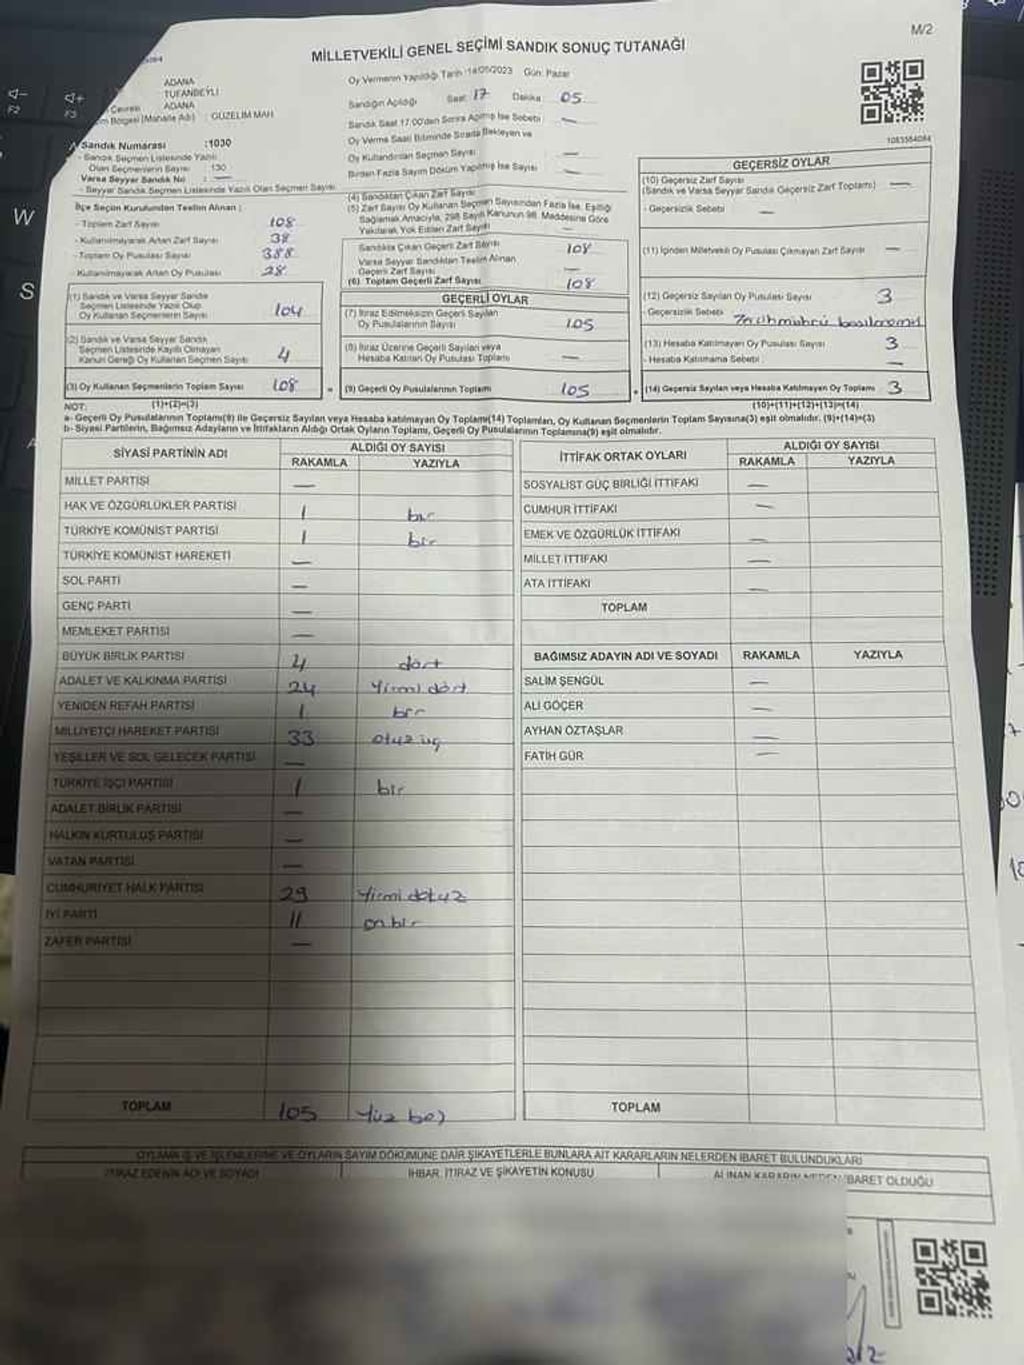 M/2
MİLLETVEKİLİ GENEL SEÇİMİ SANDIK SONUÇ TUTANAĞI
ADANA
TUFANBEYLİ
Çevresi ADANA
(Mahalle Adı) : GÜZELİM MAH
Sandık Numarası :1030
- Sandık Seçmen Listesinde Yazılı
Olan Seçmenlerin Sayısı : 130
Varsa Seyyar Sandık No : —
- Seyyar Sandık Seçmen Listesinde Yazılı Olan Seçmen Sayısı
Oy Vermenin Yapıldığı Tarih :14/05/2023 Gün: Pazar
Sandığın Açıldığı Saat: 17 Dakika 05
Sandık Saat 17.00'den Sonra Açılmış İse Sebebi —
Oy Verme Saati Bitiminde Sırada Bekleyen ve
Oy Kullandırılan Seçmen Sayısı —
Birden Fazla Sayım Döküm Yapılmış İse Sayısı —
1083584084
İlçe Seçim Kurulundan Teslim Alınan :
- Toplam Zarf Sayısı 108
- Kullanılmayarak Artan Zarf Sayısı 38
- Toplam Oy Pusulası Sayısı 388
- Kullanılmayarak Artan Oy Pusulası 28
(1) Sandık ve Varsa Seyyar Sandık
Seçmen Listesinde Yazılı Olup
Oy Kullanan Seçmenlerin Sayısı 104
(2) Sandık ve Varsa Seyyar Sandık
Seçmen Listesinde Kayıtlı Olmayan
Kanun Gereği Oy Kullanan Seçmen Sayısı 4
(3) Oy Kullanan Seçmenlerin Toplam Sayısı 108
(1)+(2)=(3)
(4) Sandıktan Çıkan Zarf Sayısı
(5) Zarf Sayısı Oy Kullanan Seçmen Sayısından Fazla İse, Eşitliği
Sağlamak Amacıyla, 298 Sayılı Kanunun 98. Maddesine Göre
Yakılarak Yok Edilen Zarf Sayısı —
Sandıkta Çıkan Geçerli Zarf Sayısı 108
Varsa Seyyar Sandıktan Teslim Alınan
Geçerli Zarf Sayısı —
(6) Toplam Geçerli Zarf Sayısı 108
GEÇERLİ OYLAR
(7) İtiraz Edilmeksizin Geçerli Sayılan
Oy Pusulalarının Sayısı 105
(8) İtiraz Üzerine Geçerli Sayılan veya
Hesaba Katılan Oy Pusulası Toplamı —
(9) Geçerli Oy Pusulalarının Toplamı 105
GEÇERSİZ OYLAR
(10) Geçersiz Zarf Sayısı
(Sandık ve Varsa Seyyar Sandık Geçersiz Zarf Toplamı) —
- Geçersizlik Sebebi —
(11) İçinden Milletvekili Oy Pusulası Çıkmayan Zarf Sayısı —
(12) Geçersiz Sayılan Oy Pusulası Sayısı 3
- Geçersizlik Sebebi
(13) Hesaba Katılmayan Oy Pusulası Sayısı 3
- Hesaba Katılmama Sebebi : —
(14) Geçersiz Sayılan veya Hesaba Katılmayan Oy Toplamı 3
(10)+(11)+(12)+(13)=(14)
NOT:
a- Geçerli Oy Pusulalarının Toplamı(9) ile Geçersiz Sayılan veya Hesaba katılmayan Oy Toplamı(14) Toplamları, Oy Kullanan Seçmenlerin Toplam Sayısına(3) eşit olmalıdır. (9)+(14)=(3)
b- Siyasi Partilerin, Bağımsız Adayların ve İttifakların Aldığı Ortak Oyların Toplamı, Geçerli Oy Pusulalarının Toplamına(9) eşit olmalıdır.
SİYASİ PARTİNİN ADI ALDIĞI OY SAYISI
RAKAMLA YAZIYLA
MİLLET PARTİSİ —
HAK VE ÖZGÜRLÜKLER PARTİSİ 1 bir
TÜRKİYE KOMÜNİST PARTİSİ 1 bir
TÜRKİYE KOMÜNİST HAREKETİ —
SOL PARTİ —
GENÇ PARTİ —
MEMLEKET PARTİSİ —
BÜYÜK BİRLİK PARTİSİ 4 dört
ADALET VE KALKINMA PARTİSİ 24 Yirmi dört
YENİDEN REFAH PARTİSİ 1 bir
MİLLİYETÇİ HAREKET PARTİSİ 33 otuz üç
YEŞİLLER VE SOL GELECEK PARTİSİ —
TÜRKİYE İŞÇİ PARTİSİ 1 bir
ADALET BİRLİK PARTİSİ —
HALKIN KURTULUŞ PARTİSİ —
VATAN PARTİSİ —
CUMHURİYET HALK PARTİSİ 29 Yirmi dokuz
İYİ PARTİ 11 on bir
ZAFER PARTİSİ —
TOPLAM 105 Yüz beş
İTTİFAK ORTAK OYLARI ALDIĞI OY SAYISI
RAKAMLA YAZIYLA
SOSYALİST GÜÇ BİRLİĞİ İTTİFAKI —
CUMHUR İTTİFAKI —
EMEK VE ÖZGÜRLÜK İTTİFAKI —
MİLLET İTTİFAKI —
ATA İTTİFAKI —
TOPLAM
BAĞIMSIZ ADAYIN ADI VE SOYADI RAKAMLA YAZIYLA
SALİM ŞENGÜL —
ALİ GÖÇER —
AYHAN ÖZTAŞLAR —
FATİH GÜR —
TOPLAM
OYLAMA İŞ VE İŞLEMLERİNE VE OYLARIN SAYIM DÖKÜMÜNE DAİR ŞİKAYETLERLE BUNLARA AİT KARARLARIN NELERDEN İBARET BULUNDUKLARI
İTİRAZ EDENİN ADI VE SOYADI
İHBAR, İTİRAZ VE ŞİKAYETİN KONUSU
ALINAN KARARIN NEDEN İBARET OLDUĞU